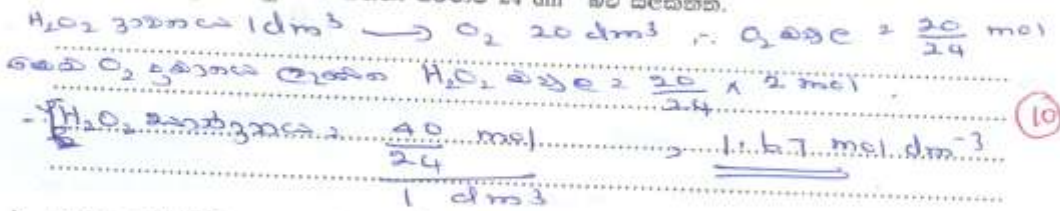 24 dm³ බව සලකන්න.
H₂O₂ ද්‍රාවණයේ 1dm³ → O₂ 20 dm³ ∴ O₂ මවුල = 20/24 mol
O₂ ප්‍රමාණය ලැබෙන H₂O₂ මවුල = 20/24 × 2 mol
H₂O₂ සාන්ද්‍රණය = (40/24 mol) / (1 dm³) = 1.67 mol dm⁻³
10